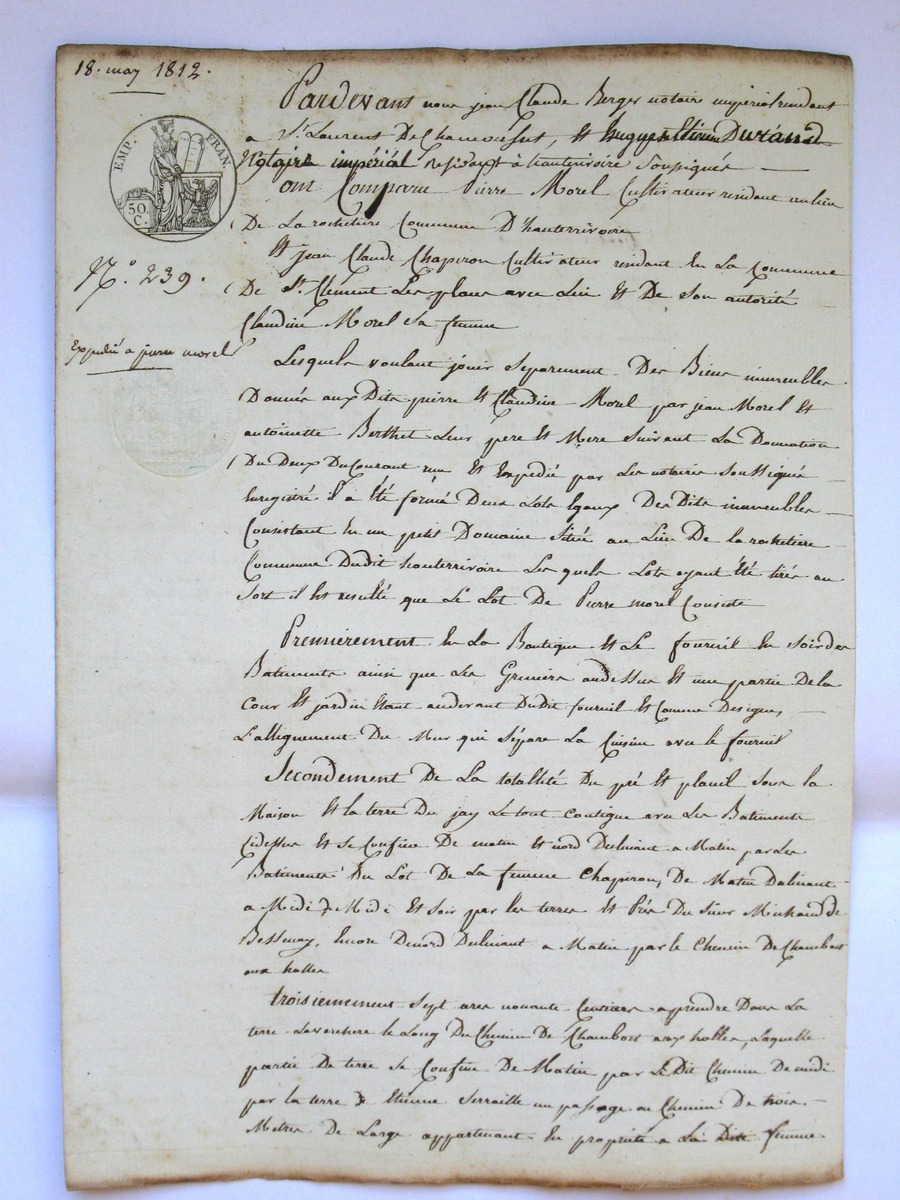 18. may 1812.
EMP. FRAN.
50. C.
N.º 239.
Expedié a pierre morel
Pardevant nous jean Claude Berger notaire impérial residant
a St. Laurent De Chamousset, Et hugues Etienne Durand
Notaire impérial residant à hauterivoire Soussignés
ont Comparu Pierre Morel Cultivateur residant au lieu
De La rochetiere Commune D'hauterrivoire
Et jean Claude Chapiron Cultivateur residant En La Commune
De St. Clément Les places avec Lui Et De Son autorité
Claudine Morel Sa femme
Lesquels voulant jouir Séparement Des Biens immeubles
Donnés aux Dits pierre Et Claudine Morel par jean Morel Et
antoinette Berthet Leur pere Et Mere Suivant La Donnation
Du Deux Du Courant Et Expedié par Les notaires Soussignés
Enregistré il a Eté formé Deux Lots Egaux Des Dits immeubles
Consistant En un petit Domaine Situé au Lieu De La rochetiere
Commune Dudit hauterrivoire Les quels Lots ayant Eté tirés au
Sort il Est resulté que Le Lot De Pierre morel Consiste
Premièrement En La Boutique Et Le fournil En Soir des
Batiments ainsi que Les Greniers audessus Et une partie De la
Cour Et jardin Etant audevant Dudit fournil Et Comme Designe,
L'allignement Du Mur qui Sépare La Cuisine avec le fournil
Secondement De La totallité Du pré Et Sous la
Maison Et la terre Du jay Le tout Contigue avec Les Batiments
Cidessus Et Se Confine De matin Et nord Déclinant a Matin par Les
Batiments Du Lot De La femme Chapiron, De Matin Déclinant
a Midi, Midi Et Soir par les terres Et Prés Du Sieur Michaud de
Bessenay, Encore De nord Déclinant a Matin par le Chemin De Chambost
aux halles
troisiemement Sept ares nonante Centiares aprendre Dans La
terre Laverchere le Long Du Chemin De Chambost aux halles, Laquelle
partie De terre Se Confine De Matin par Le Dit Chemin De midi
par la terre Etienne Serraille un passage ou Chemin De trois
Metres De Large appartenant En propriété a La Dite femme